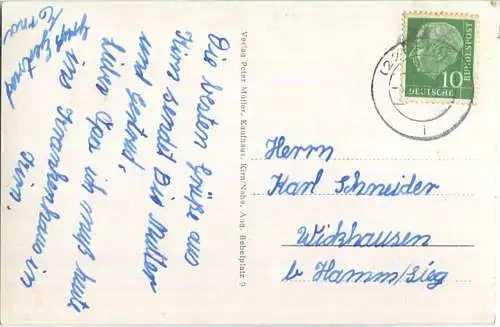 Die besten Grüße aus
Kirn sendet Dir Mutter
und Gertrud.
Lieber Opa ich muß heute
ins Krankenhaus in
Kirn.
Gruß Gertrud
Verlag Peter Müller, Kaufhaus, Kirn/Nahe, Aug. Bebelplatz 6
DEUTSCHE
BUNDESPOST
10
Herrn
Karl Schneider
Wickhausen
b Hamm/Sieg